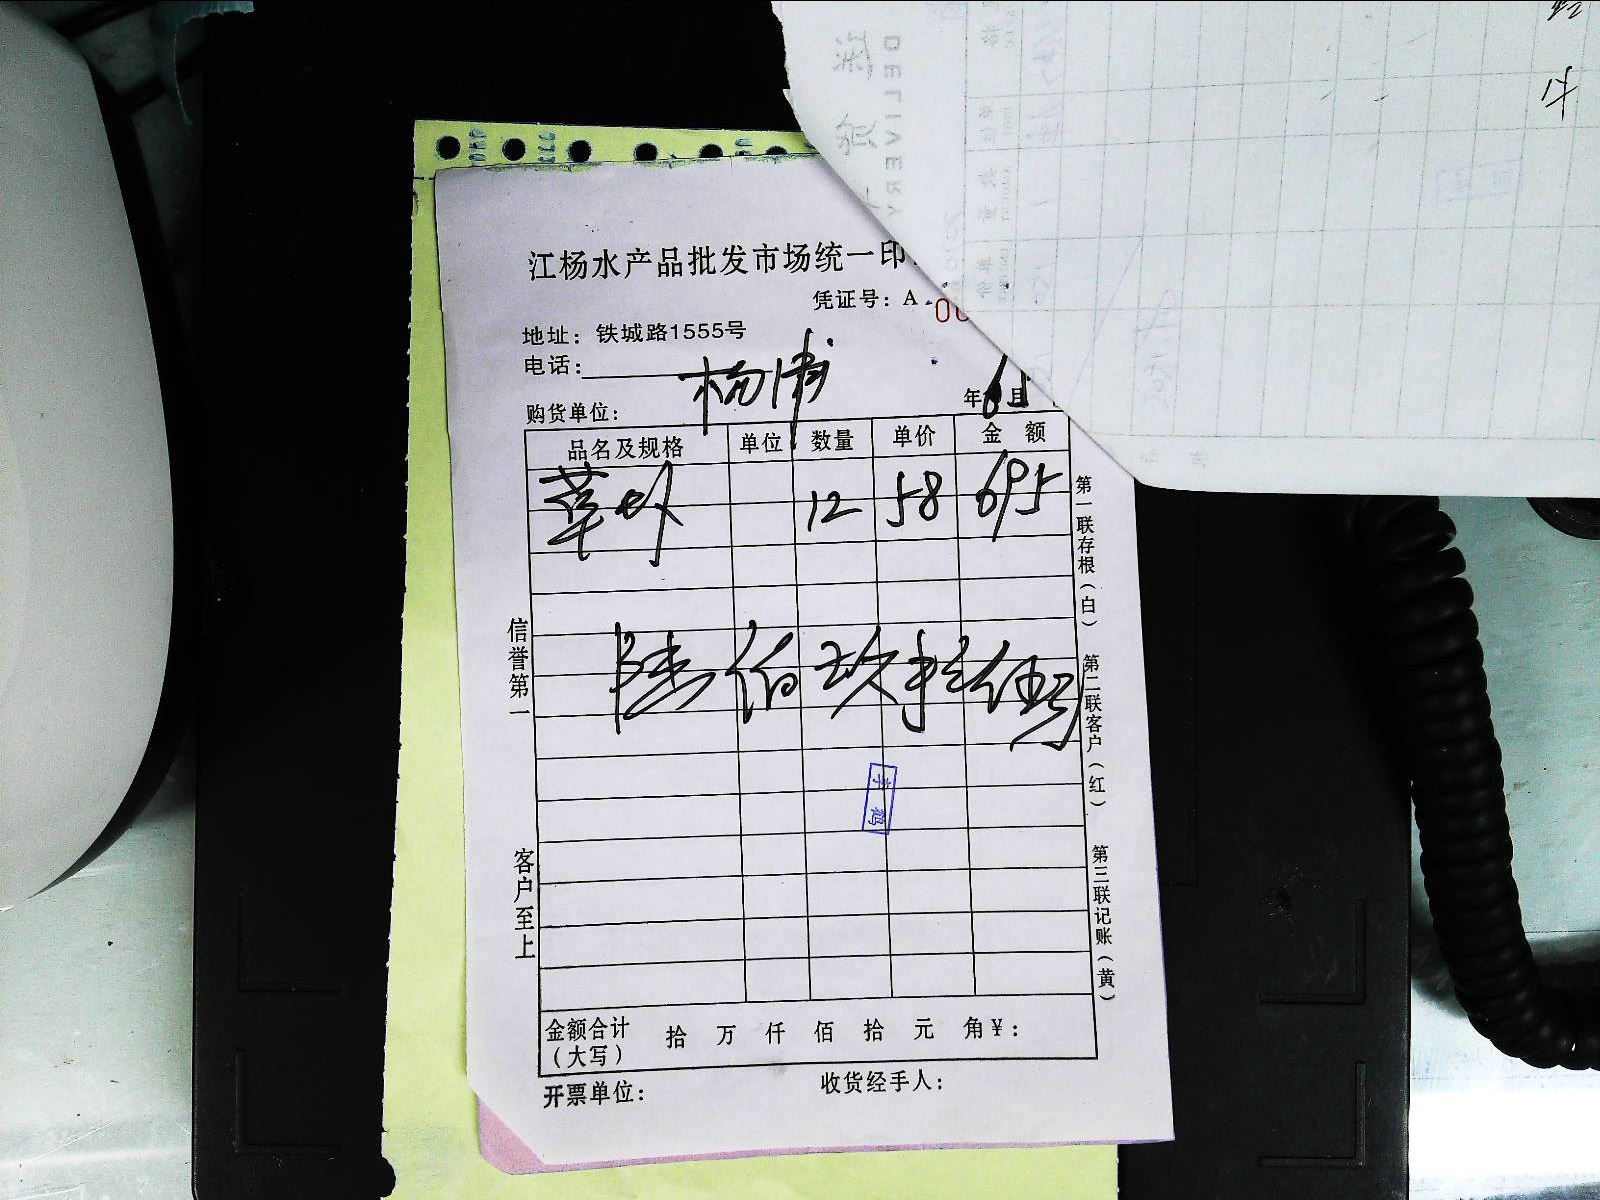 江杨水产品批发市场统一印
凭证号：A
00
地址：铁城路1555号
电话：
杨浦
购货单位：
年6月
品名及规格 单位 数量 单价 金额
12 58 695
陆佰玖拾伍
信誉第一
客户至上
第一联存根（白）
第二联客户（红）
第三联记账（黄）
金额合计（大写） 拾 万 仟 佰 拾 元 角 ¥：
开票单位： 收货经手人：
DELIVERY